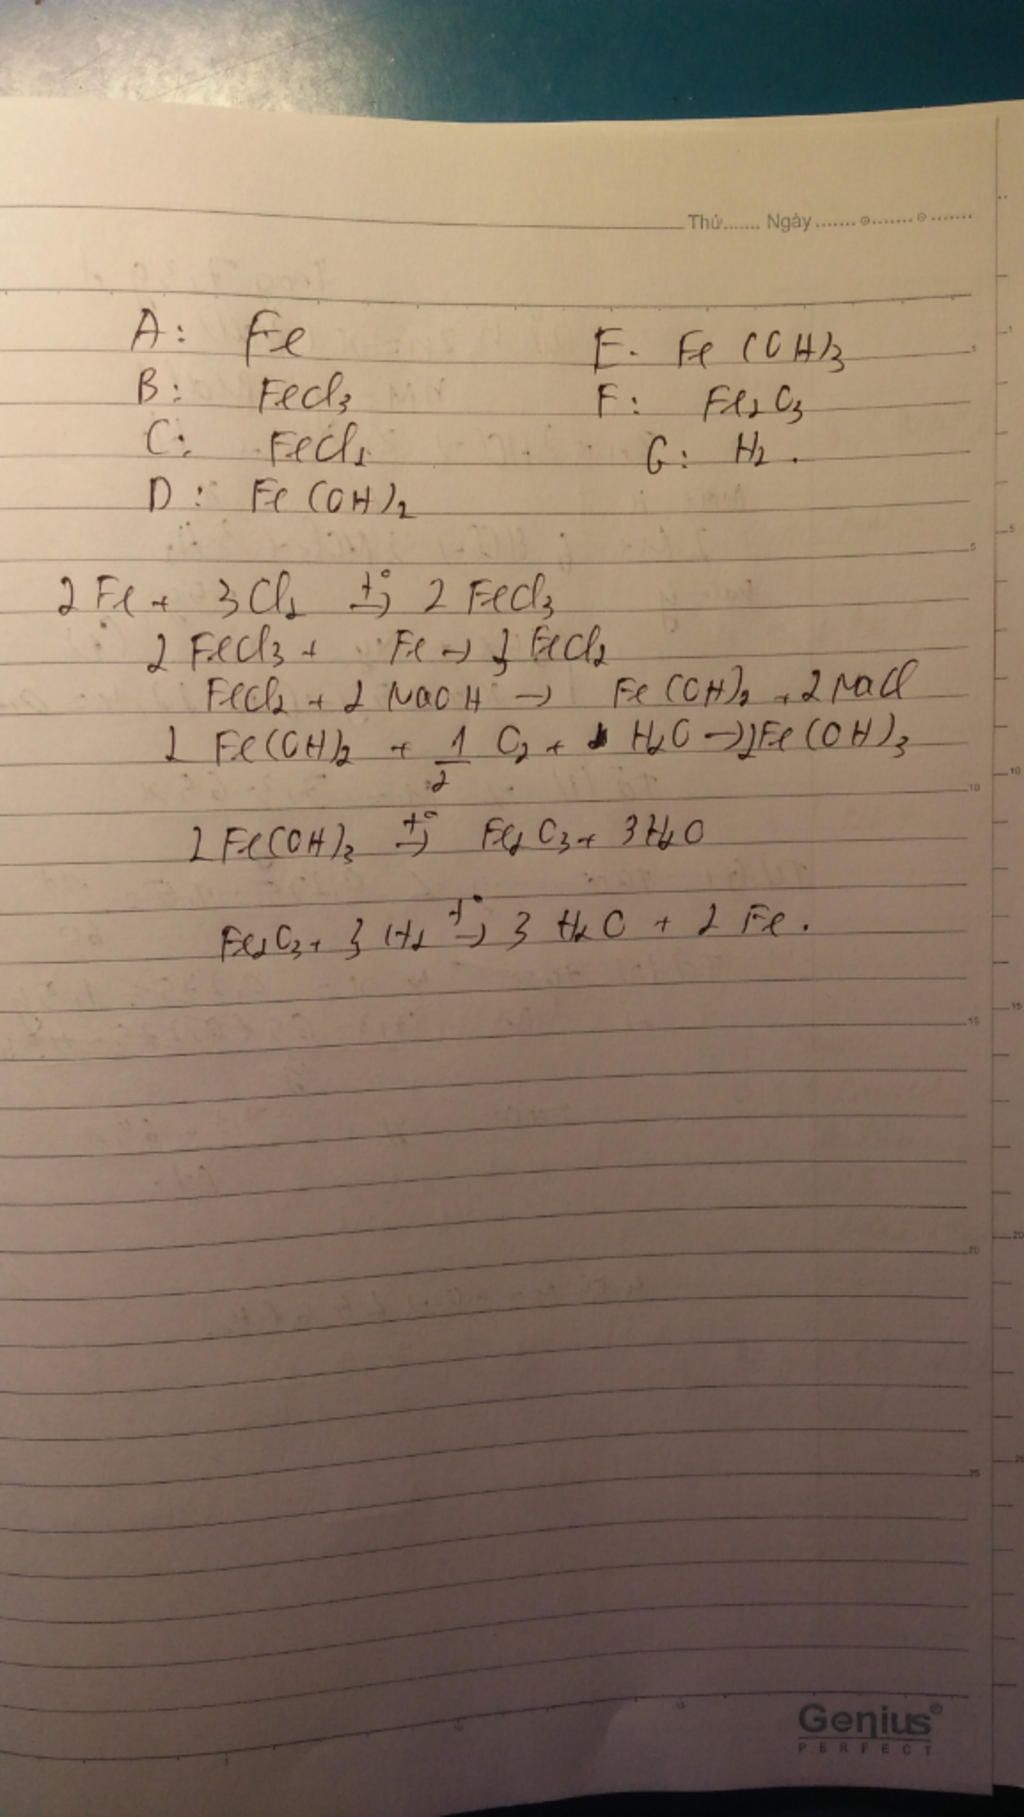 Thứ....... Ngày
A: Fe E. Fe(OH)3
B: FeCl3 F: Fe2O3
C: FeCl2 G: H2.
D: Fe(OH)2
2Fe + 3Cl2 t°→ 2FeCl3
2FeCl3 + Fe → 3FeCl2
FeCl2 + 2NaOH → Fe(OH)2 + 2NaCl
2Fe(OH)2 + 1/2 O2 + H2O → 2Fe(OH)3
2Fe(OH)3 t°→ Fe2O3 + 3H2O
Fe2O3 + 3H2 t°→ 3H2O + 2Fe.
Genius
PERFECT